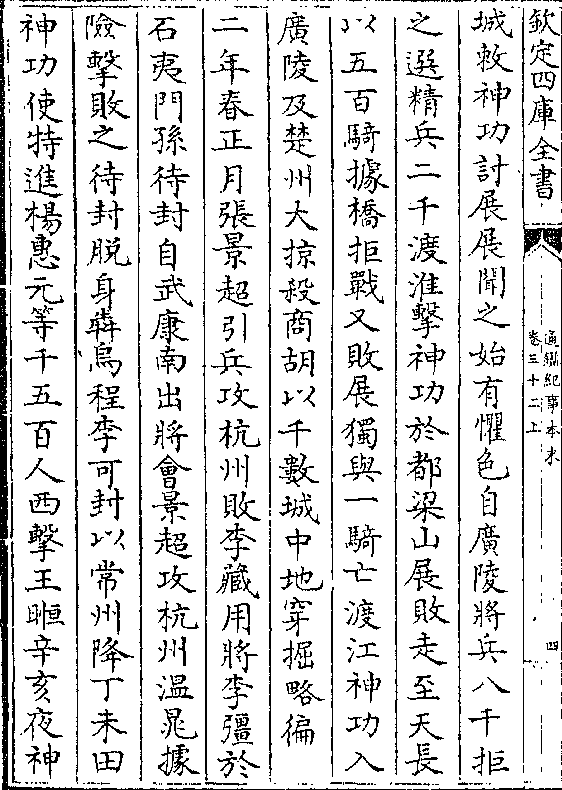 欽定四庫全書
通鑑紀事本末
卷三十二上
四
城敕神功討展展聞之始有懼色自廣陵將兵八千拒
之選精兵二千渡淮擊神功於都梁山展敗走至天長
以五百騎據橋拒戰又敗展獨與一騎亡渡江神功入
廣陵及楚州大掠殺商胡以千數城中地穿掘略徧
二年春正月張景超引兵攻杭州敗李藏用將李彊於
石夷門孫待封自武康南出將會景超攻杭州溫晁據
險擊敗之待封脱身犇烏程李可封以常州降丁未田
神功使特進楊惠元等千五百人西擊王暅辛亥夜神